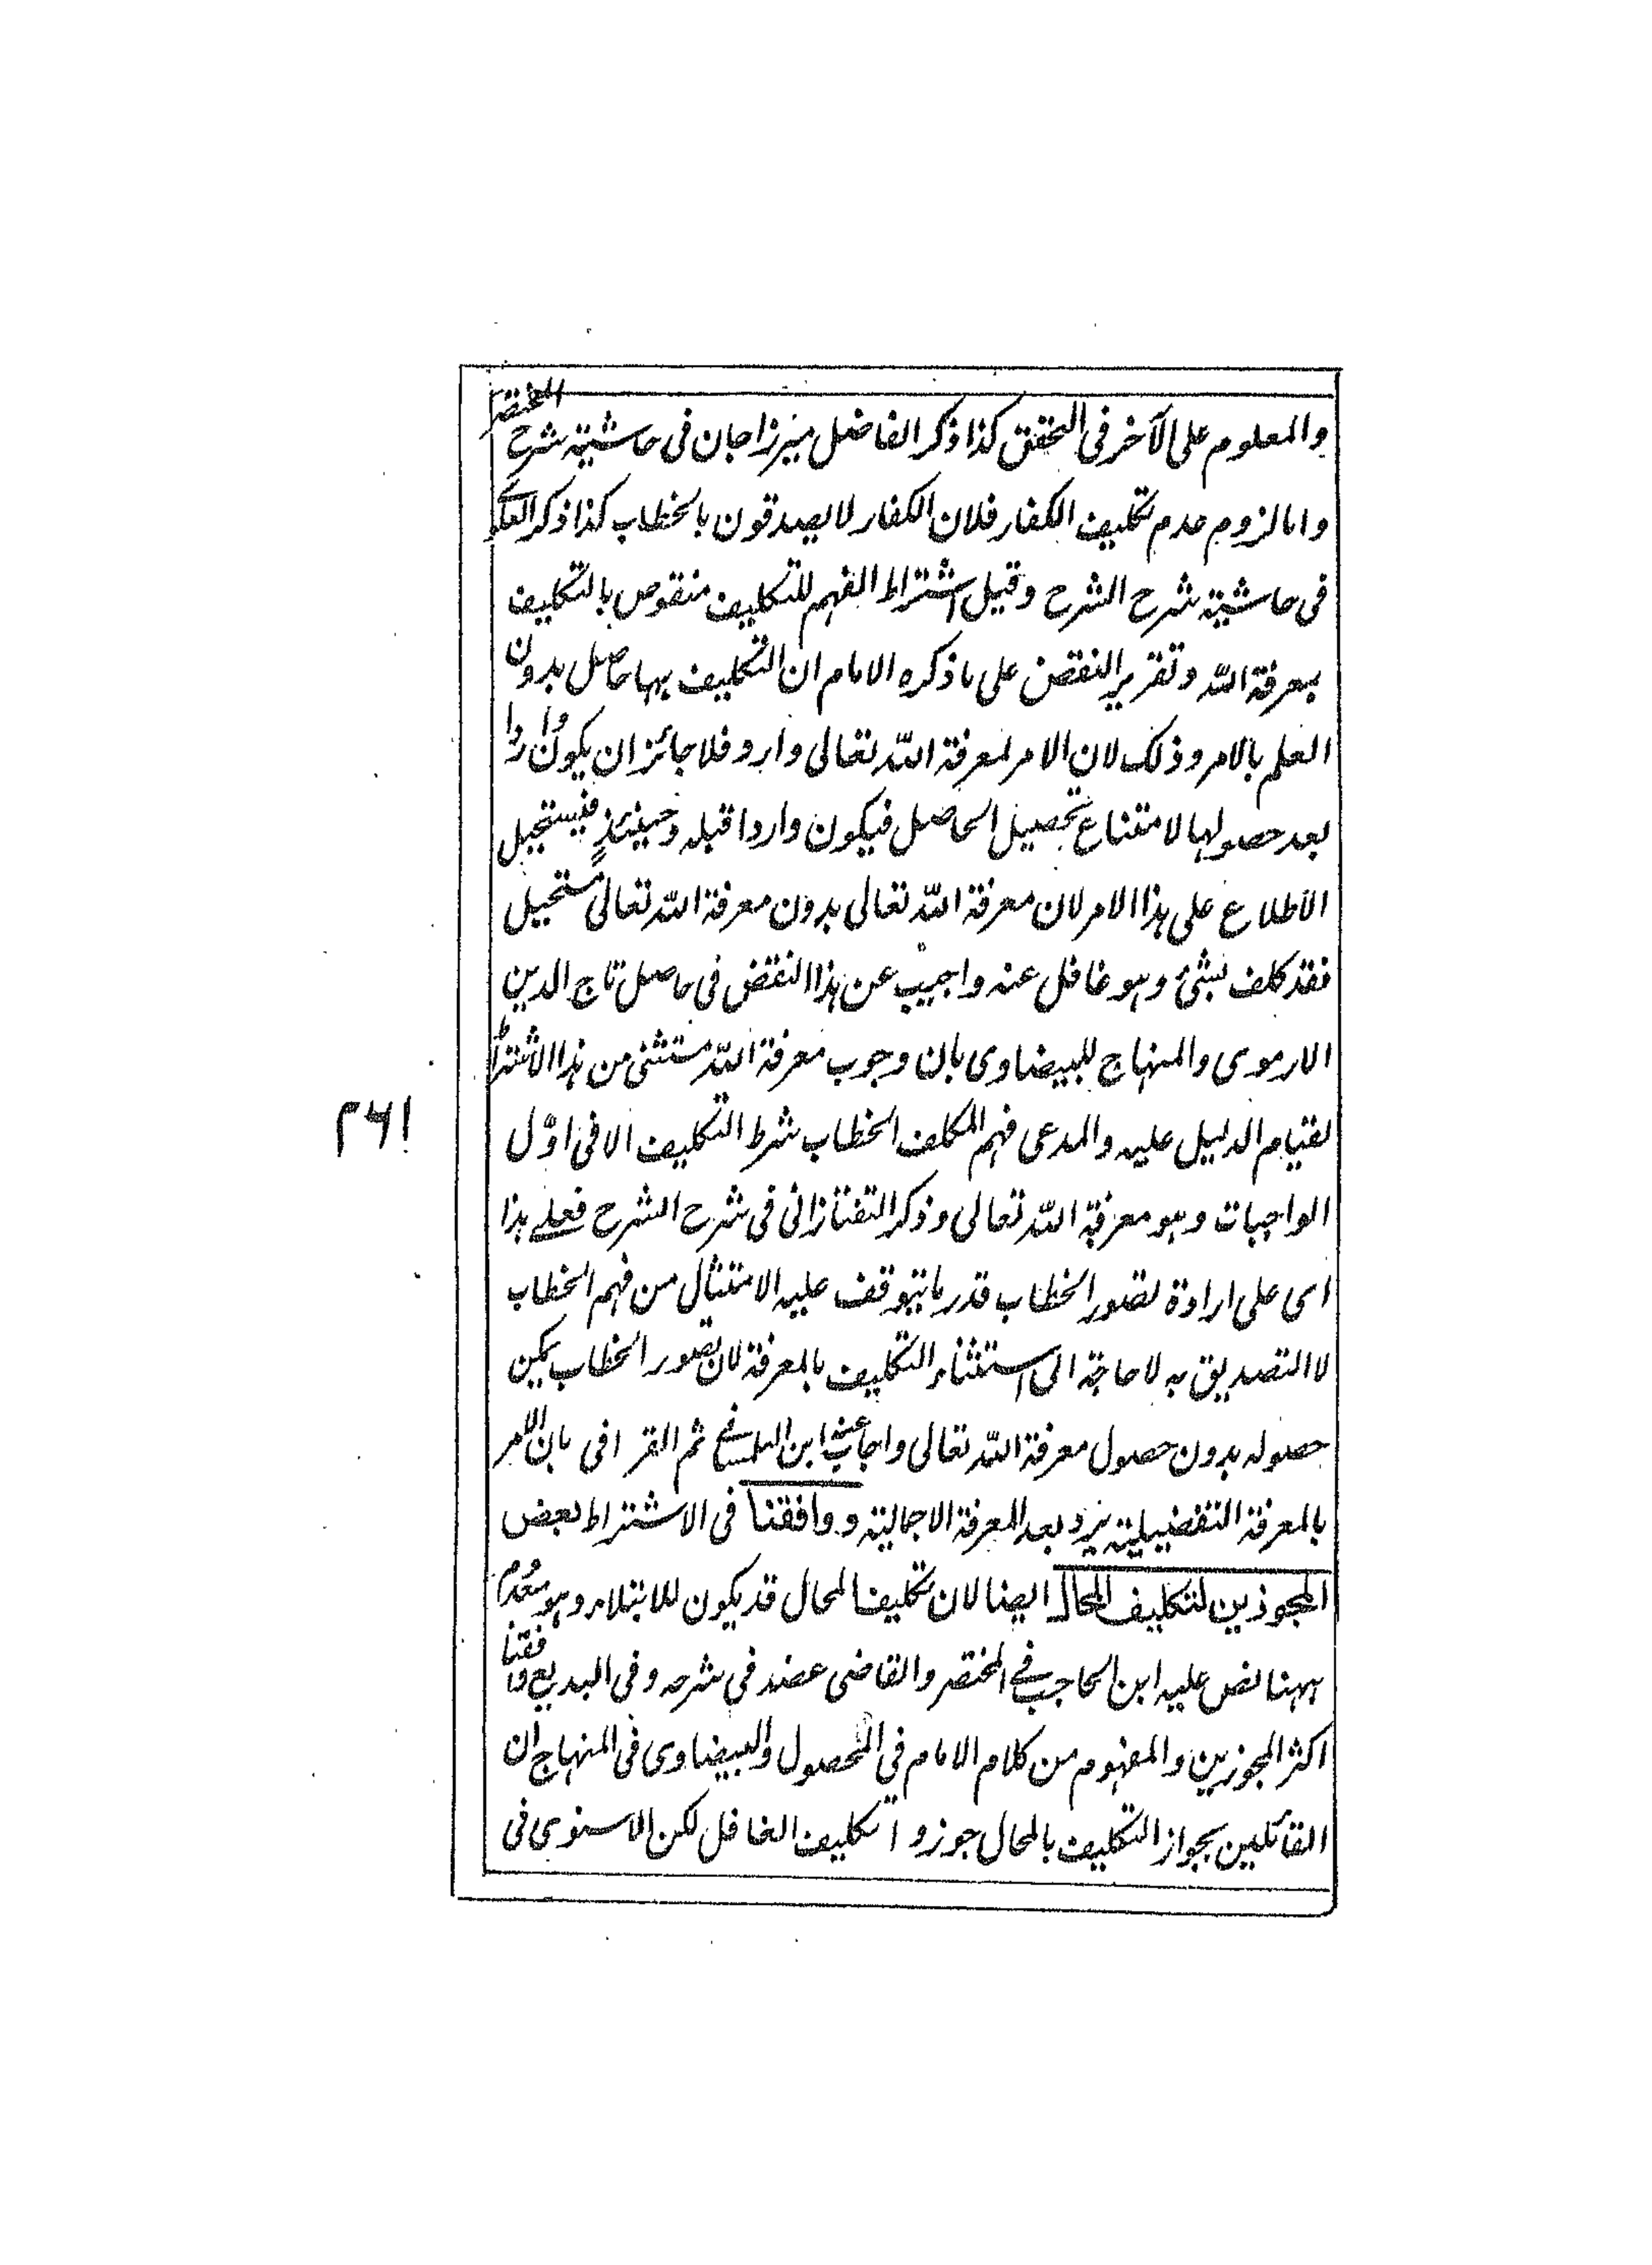 والمعلوم على الآخر فى التحقق كذا ذكر الفاضل ميرزا جان فى حاشية شرح المختصر
واما لزوم عدم تكليف الكفار فلان الكفار لا يصدقون بالخطاب كذا ذكر العلامة
فى حاشية شرح الشرح وقيل اشتراط الفهم للتكليف منقوص بالتكليف
بمعرفة الله وتقرير النقض على ما ذكره الامام ان التكليف بها حاصل بدون
العلم بالامر وذلك لان الامر لمعرفة الله تعالى وارد فلا جائز ان يكون واردا
بعد حصولها لامتناع تحصيل الحاصل فيكون واردا قبله وحينئذٍ فيستحيل
الاطلاع على هذا الامر لان معرفة الله تعالى بدون معرفة الله تعالى مستحيل
فقد كلف بشئ وهو غافل عنه واجيب عن هذا النقض فى حاصل تاج الدين
الارموى والمنهاج للبيضاوى بان وجوب معرفة الله مستثنى من هذا الاشتراط
لقيام الدليل عليه والمدعى فهم المكلف الخطاب شرط التكليف الا فى اوّل
الواجبات وهو معرفة الله تعالى وذكر التفتازانى فى شرح الشرح فعلى هذا
اى على ارادة تصور الخطاب قدر ما يتوقف عليه الامتثال من فهم الخطاب
لا التصديق به لا حاجة الى استثناء التكليف بالمعرفة لان تصور الخطاب يمكن
حصوله بدون حصول معرفة الله تعالى واجاب عنه ابن التلمسانى ثم القرافى بان الامر
بالمعرفة التفضيلية يرد بعد المعرفة الاجمالية و وافقنا فى الاشتراط بعض
المجوذين لتكليف المحال ايضا لان تكليف المحال قد يكون للابتلاء وهو معدوم
ههنا نص عليه ابن الحاجب فى المختصر والقاضى عضد فى شرحه وفى البديع وافقنا
اكثر المجوزين والمفهوم من كلام الامام فى المحصول والبيضاوى فى المنهاج ان
القائلين بجواز التكليف بالمحال جوزوا تكليف الغافل لكن الاسنوى فى
٢٦١